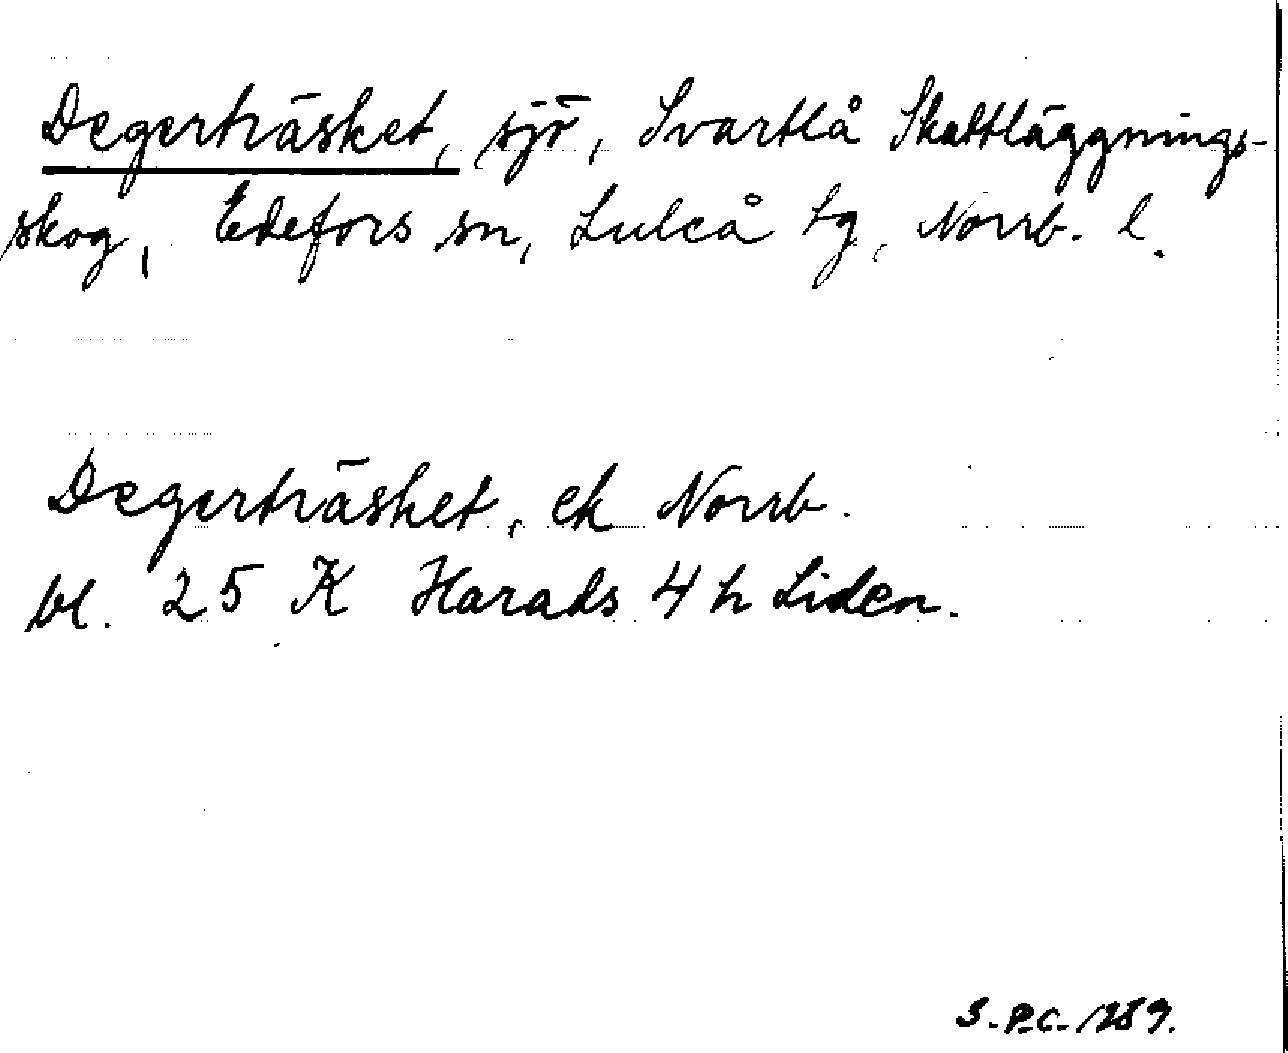 Degerträsket, sjö, Svartlå Skattläggnings-
skog, Edefors sn, Luleå tg, Norrb. l.
Degerträsket, ek Norrb.
bl. 25 K Harads 4 h Liden.
S.P.C.